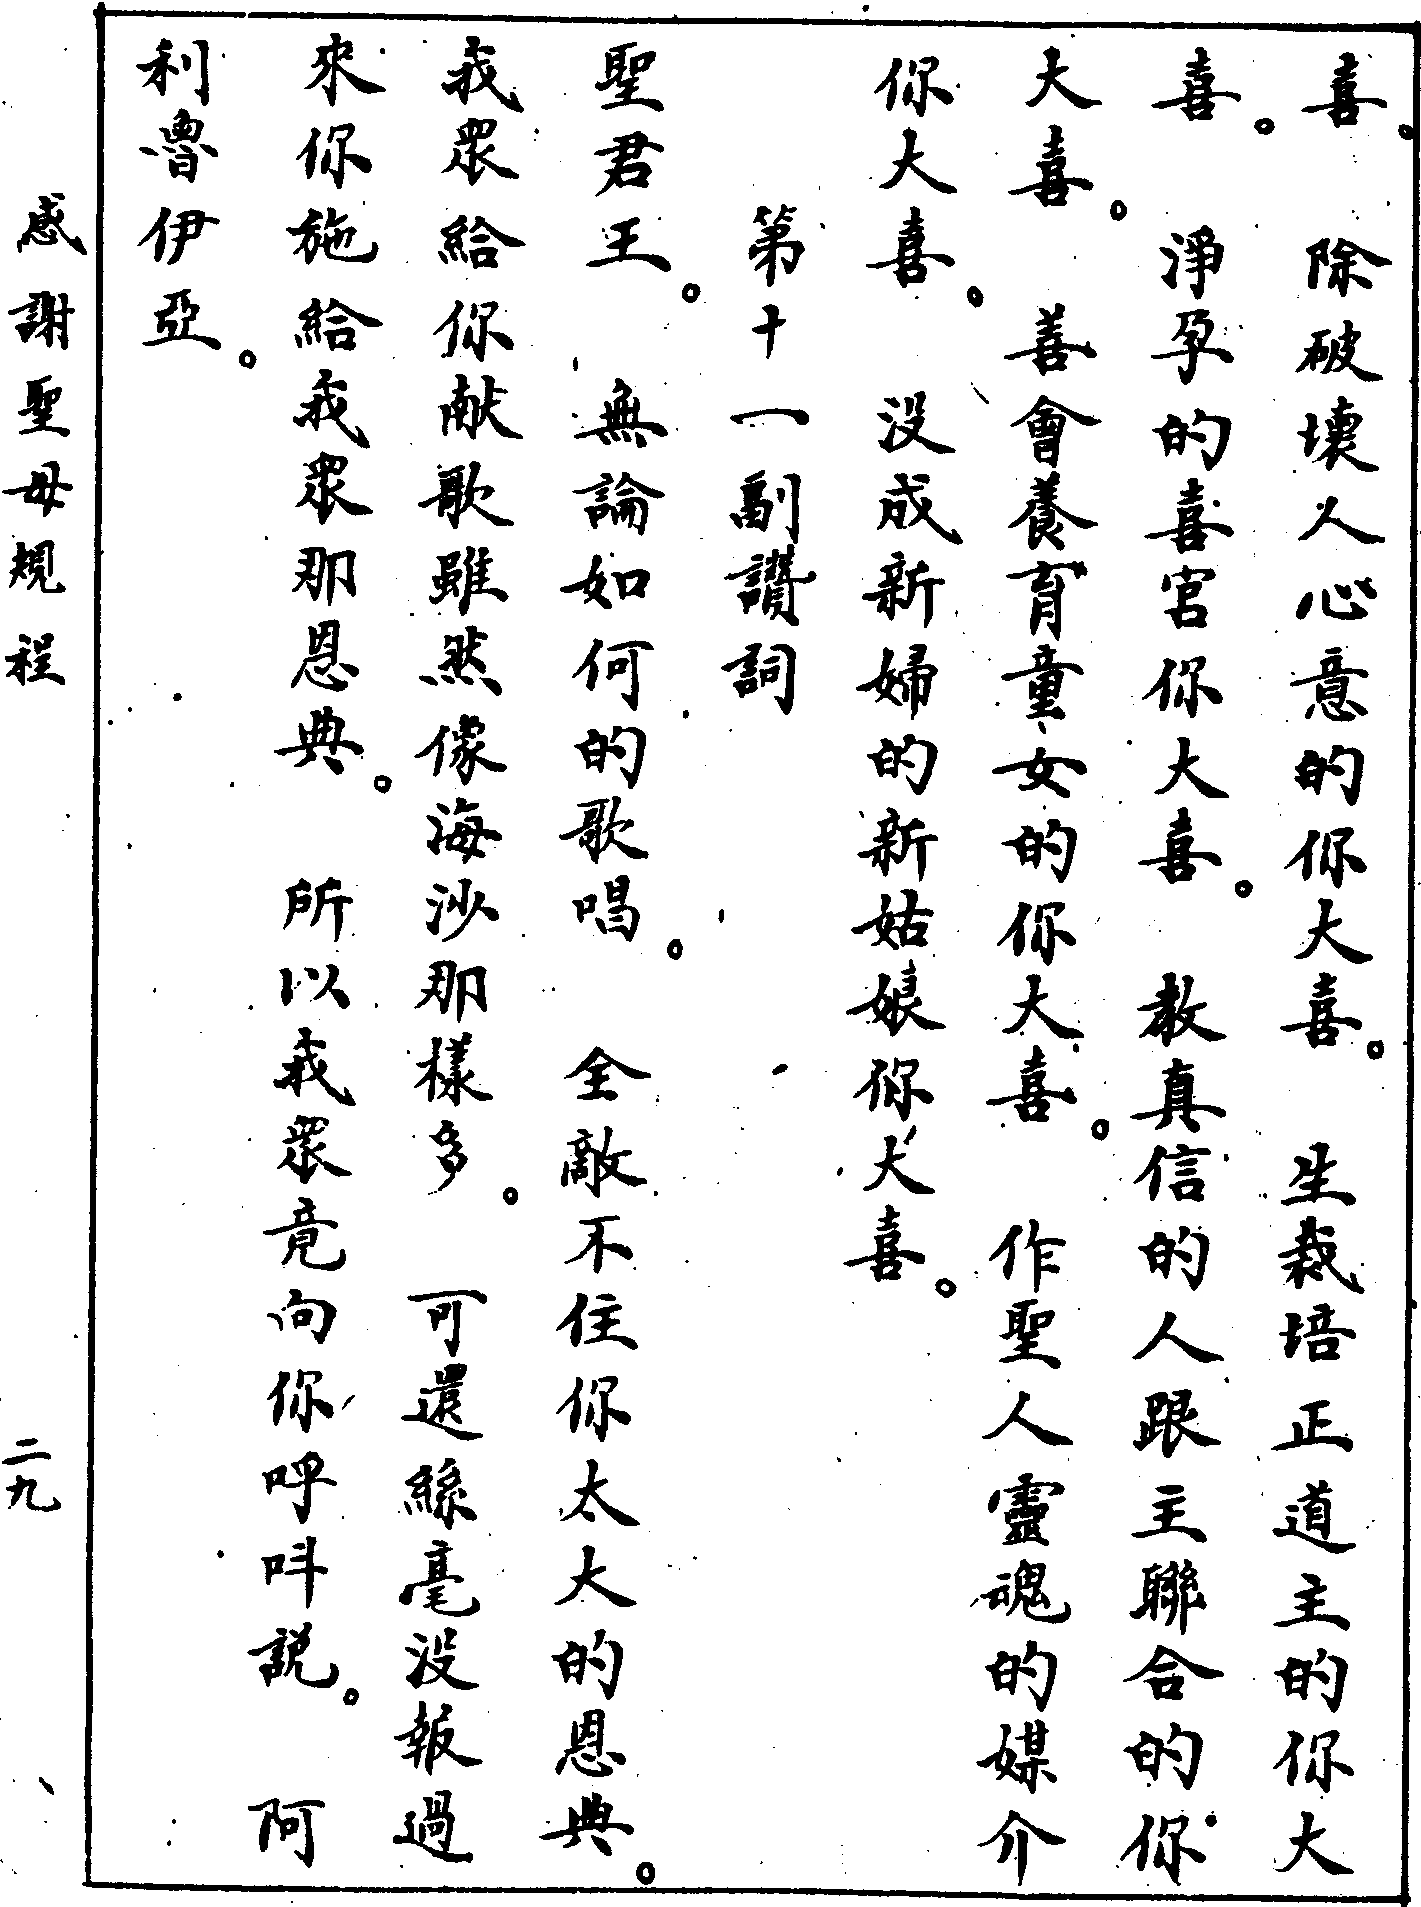 喜。　除破壞人心意的你大喜。　生栽培正道主的你大
喜。　淨孕的喜宮你大喜。　教真信的人跟主聯合的你
大喜。　善會養育童女的你大喜。　作聖人靈魂的媒介
你大喜。　没成新婦的新姑娘你大喜。
第十一副讚詞
聖君王。　無論如何的歌唱。　全敵不住你太大的恩典。
我眾給你献歌雖然像海沙那樣多。　可還絲毫没報過
來你施給我眾那恩典。　所以我眾竟向你呼呌説。　阿
利魯伊亞。
感謝聖母規程
二九